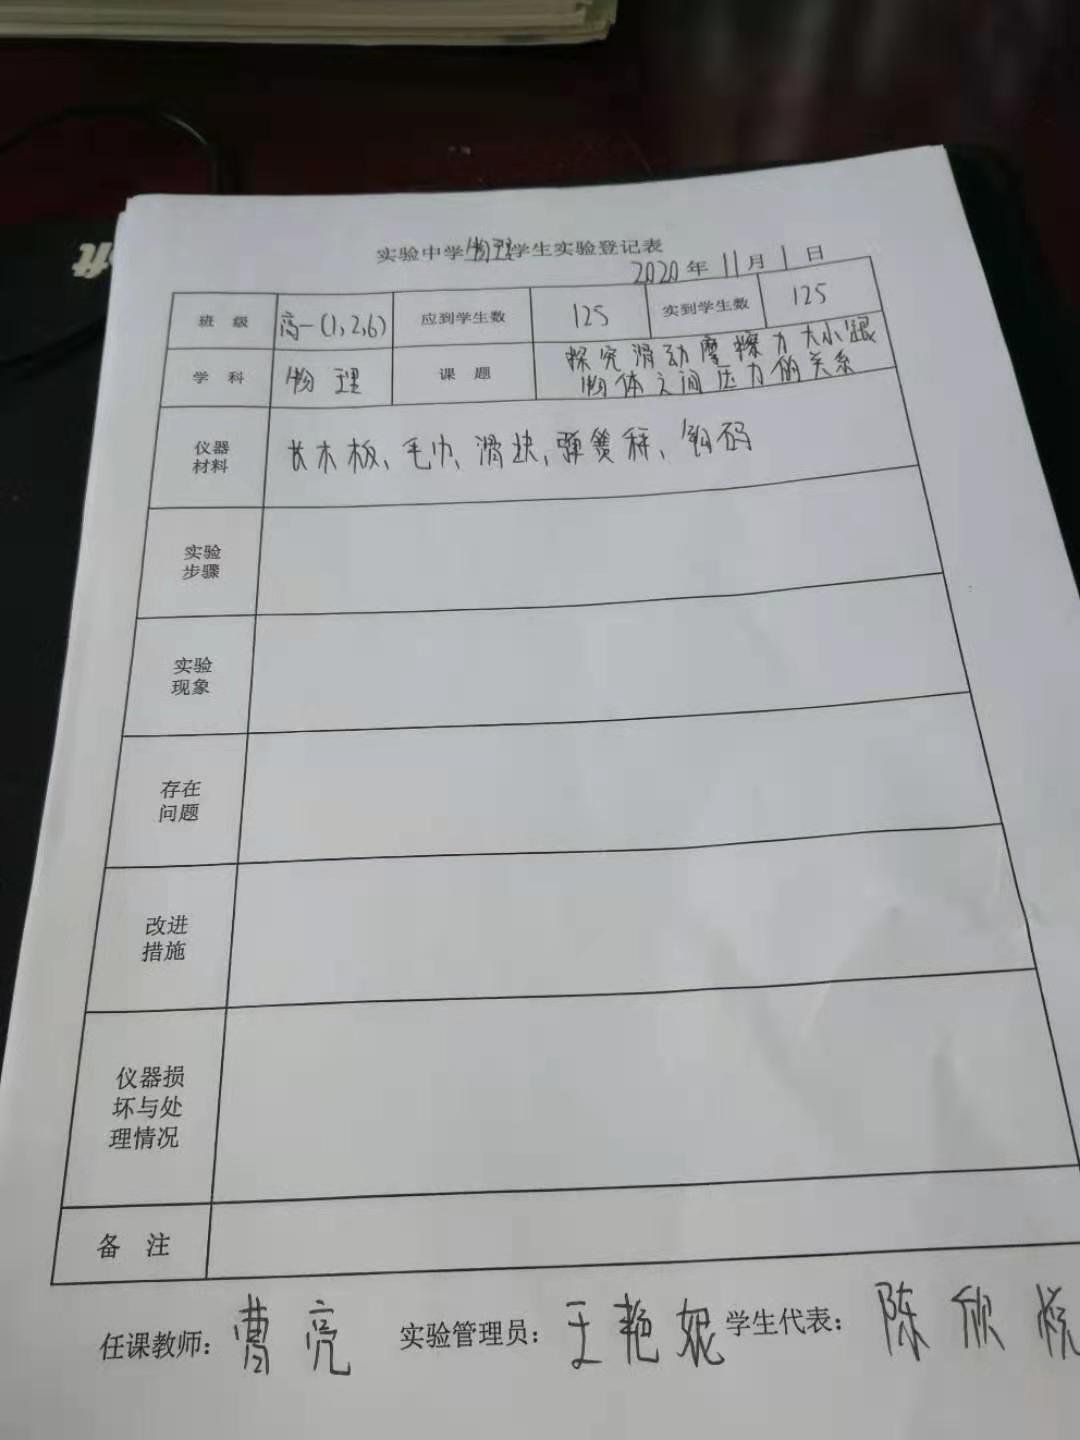 实验中学物理学生实验登记表
2020年11月1日
班级 高一(1,2,6) 应到学生数 125 实到学生数 125
学科 物理 课题 探究滑动摩擦力大小跟
物体之间压力的关系
仪器
材料
长木板、毛巾、滑块、弹簧秤、钩码
实验
步骤
实验
现象
存在
问题
改进
措施
仪器损
坏与处
理情况
备注
任课教师：曹亮 实验管理员：王艳妮 学生代表：陈欣悦